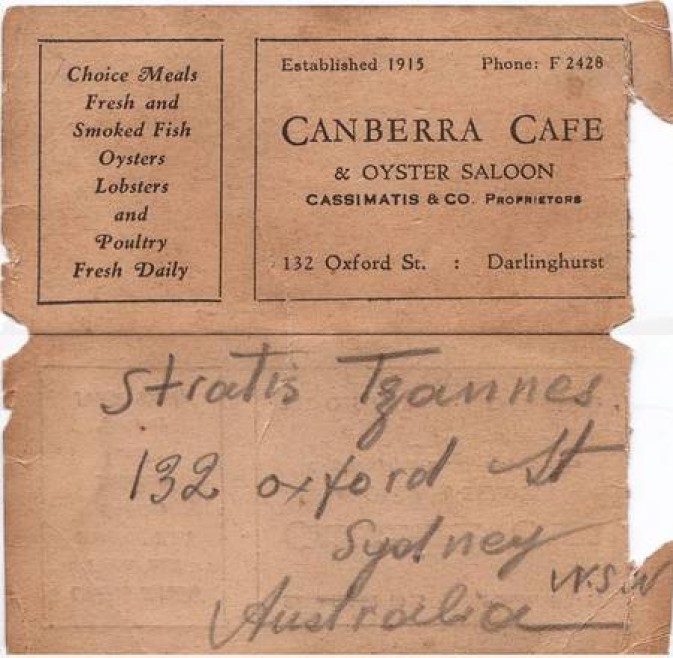 Choice Meals
Fresh and
Smoked Fish
Oysters
Lobsters
and
Poultry
Fresh Daily
Established 1915 Phone: F 2428
CANBERRA CAFE
& OYSTER SALOON
CASSIMATIS & CO. PROPRIETORS
132 Oxford St. : Darlinghurst
Stratis Tzannes.
132 oxford St
Sydney
N.S.W
Australia